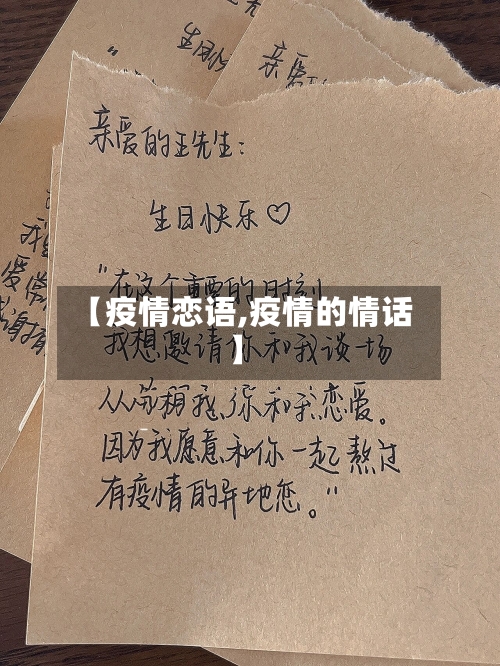 生日快
亲爱
亲爱的王先生:
生日快乐♡
"在这个重要的时刻
【疫情恋语,疫情的情话
】
我想邀请你和我谈一场
你和我恋爱。
因为我愿意和你一起熬过
有疫情的异地恋。"